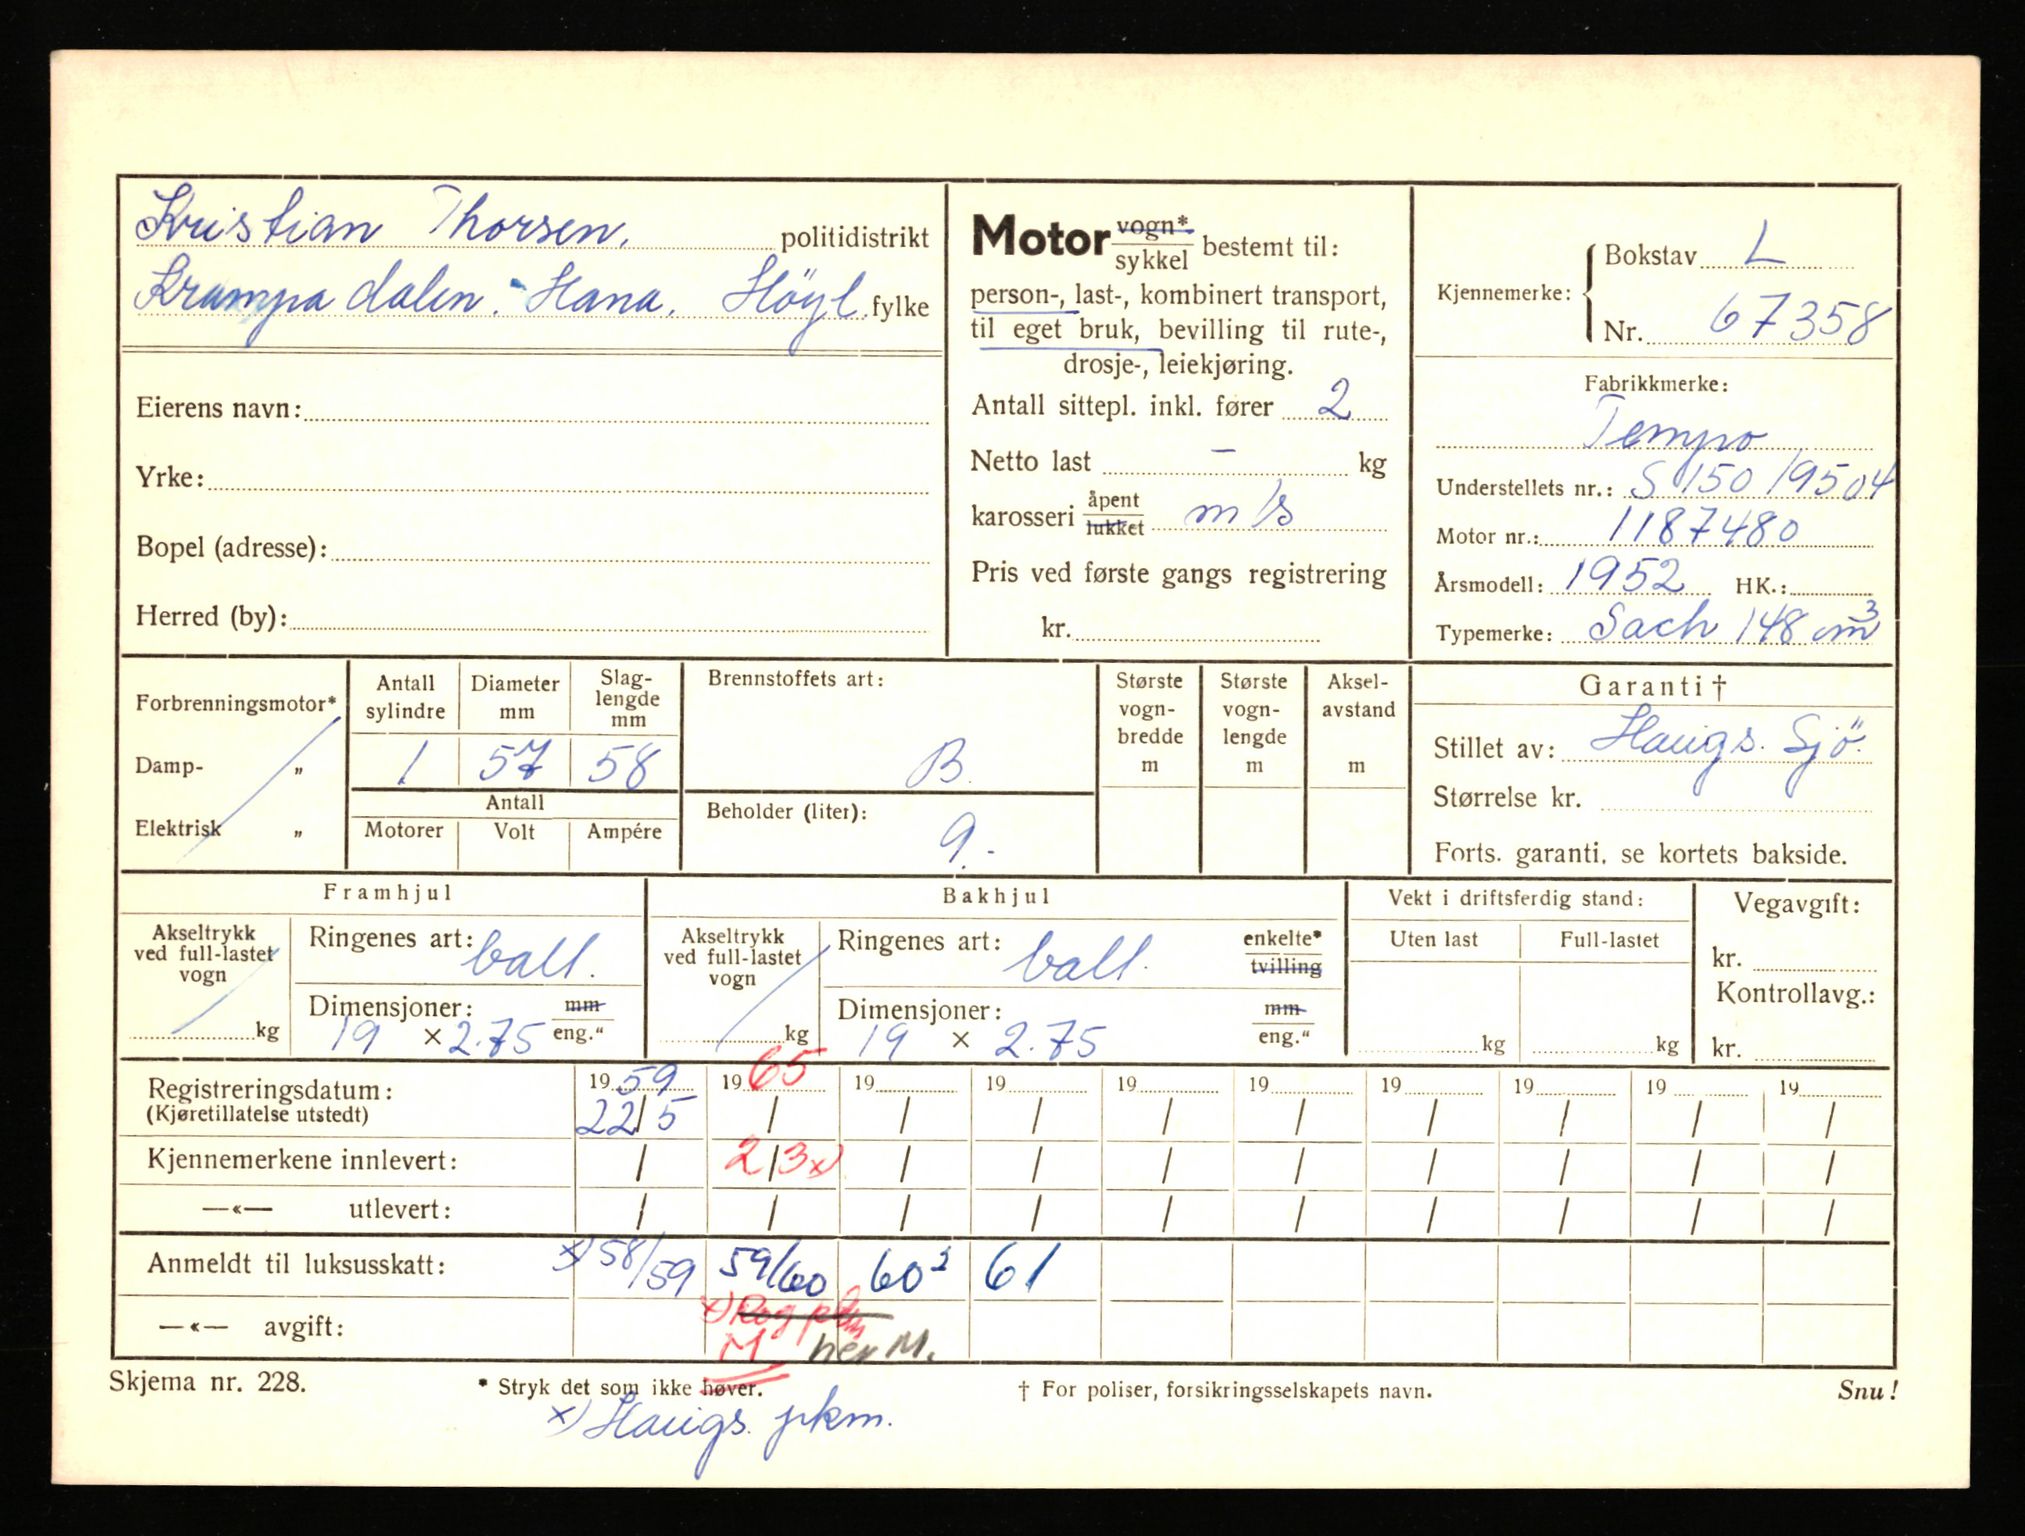 Kristian Thorsen, politidistrikt
Krampa dalen. Hana. Höyl. fylke
Eierens navn:
Yrke:
Bopel (adresse):
Herred (by):
Motor vogn*
sykkel bestemt til:
person-, last-, kombinert transport,
til eget bruk, bevilling til rute-,
drosje-, leiekjøring.
Antall sittepl. inkl. fører 2
Netto last – kg
karosseri åpent
lukket m/s
Pris ved første gangs registrering
kr.
Kjennemerke: Bokstav L
Nr. 67358
Fabrikkmerke:
Tempo
Understellets nr.: S 150 19504
Motor nr.: 1187480
Årsmodell: 1952 HK.:
Typemerke: Sach 148 cm³
Forbrenningsmotor*
Damp- „
Elektrisk „
Antall sylindre
1
Diameter mm
57
Slag-
lengde
mm
58
Antall
Motorer Volt Ampére
Brennstoffets art:
B.
Beholder (liter):
9.-
Største
vogn-
bredde
m
Største
vogn-
lengde
m
Aksel-
avstand
m
Garanti †
Stillet av: Haugs. Sjö.
Størrelse kr.
Forts. garanti, se kortets bakside.
Framhjul
Akseltrykk
ved full-lastet
vogn
kg
Ringenes art: ball.
Dimensjoner: mm
19 × 2.75 eng.“
Bakhjul
Akseltrykk
ved full-lastet
vogn
kg
Ringenes art: ball. enkelte*
tvilling
Dimensjoner: mm
19 × 2.75 eng.“
Vekt i driftsferdig stand:
Uten last Full-lastet
kg kg
Vegavgift:
kr.
Kontrollavg.:
kr.
Registreringsdatum: 1959 1965 19 19 19 19 19 19 19 19
(Kjøretillatelse utstedt) 22/5 / / / / / / / / /
Kjennemerkene innlevert: / 2/3 x) / / / / / / / /
—«— utlevert: / / / / / / / / / /
Anmeldt til luksusskatt: x) 58/59 59/60 60³ 61
x) Rog
—«— avgift: M her M.
Skjema nr. 228. * Stryk det som ikke høver. † For poliser, forsikringsselskapets navn. Snu!
x) Haugs. pkm.